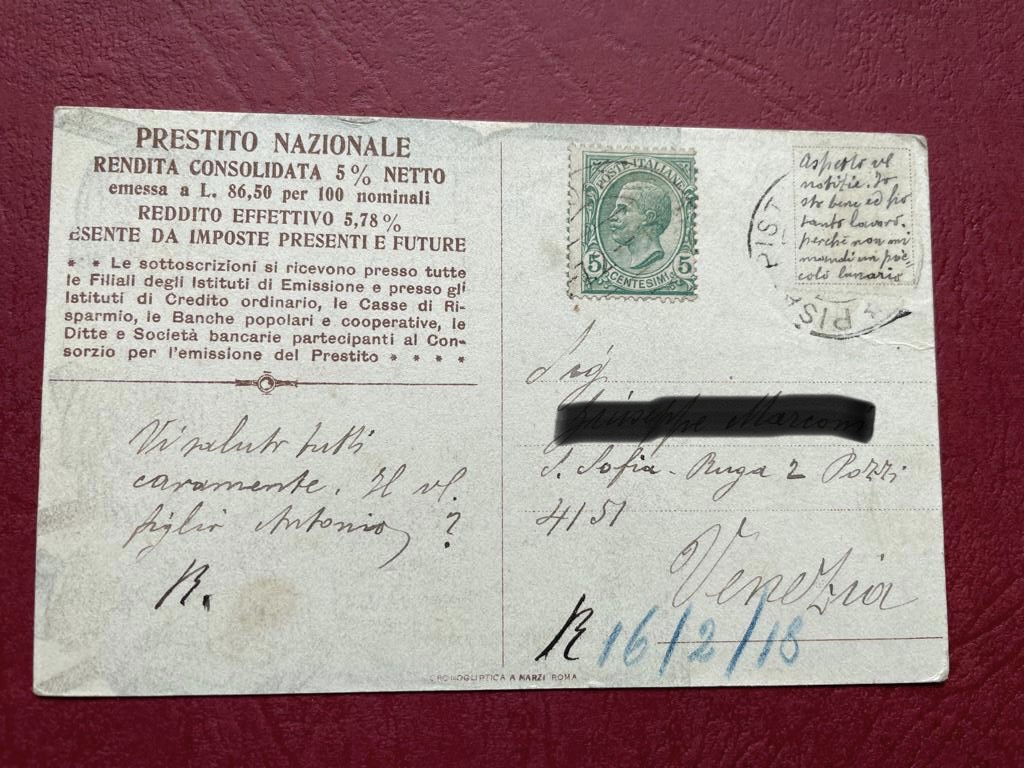 PRESTITO NAZIONALE
RENDITA CONSOLIDATA 5% NETTO
emessa a L. 86,50 per 100 nominali
REDDITO EFFETTIVO 5,78%
ESENTE DA IMPOSTE PRESENTI E FUTURE
* * Le sottoscrizioni si ricevono presso tutte
le Filiali degli Istituti di Emissione e presso gli
Istituti di Credito ordinario, le Casse di Ri-
sparmio, le Banche popolari e cooperative, le
Ditte e Società bancarie partecipanti al Con-
sorzio per l'emissione del Prestito * * * *
Vi saluto tutti
caramente. Il vs.
figlio Antonio ?
R.
POSTE ITALIANE
5 CENTESIMI 5
PISA
Aspetto vs
notizie. Io
sto bene ed ho
tanto lavoro.
perché non mi
mandi un pic
colo lunario
Sig
S. Sofia - Ruga 2 Pozzi
4151
Venezia
R 16/2/18
CROMOGLIPTICA A MARZI ROMA